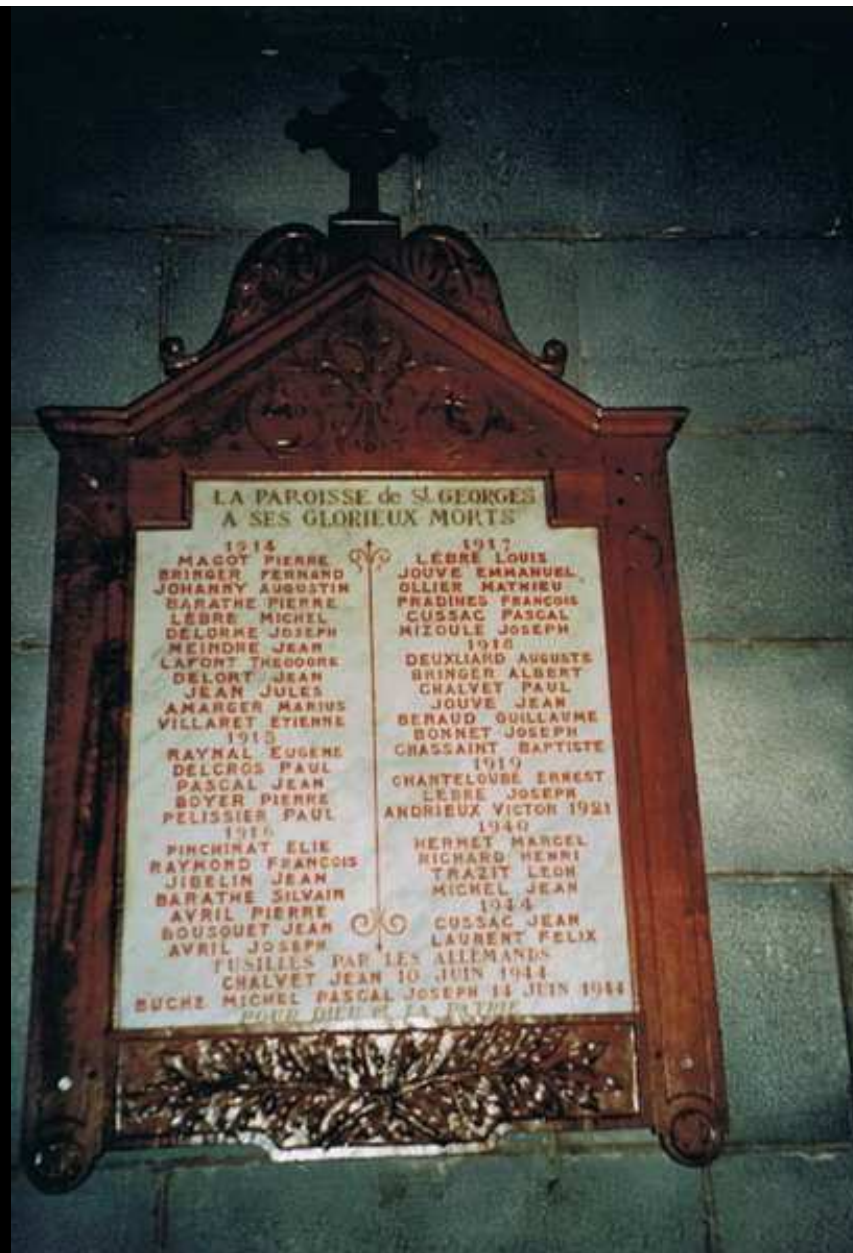 LA PAROISSE de St. GEORGES
A SES GLORIEUX MORTS
1914
MAGOT PIERRE
BRINGER FERNAND
JOHANNY AUGUSTIN
BARATHE PIERRE
LÈBRE MICHEL
DELORME JOSEPH
MEINDRE JEAN
LAFONT THEODORE
DELORT JEAN
JEAN JULES
AMARGER MARIUS
VILLARET ETIENNE
1915
RAYNAL EUGENE
DELCROS PAUL
PASCAL JEAN
BOYER PIERRE
PELISSIER PAUL
1916
PINCHINAT ELIE
RAYMOND FRANÇOIS
JIBELIN JEAN
BARATHE SILVAIN
AVRIL PIERRE
BOUSQUET JEAN
AVRIL JOSEPH
1917
LÈBRE LOUIS
JOUVE EMMANUEL
OLLIER MATHIEU
PRADINES FRANÇOIS
CUSSAC PASCAL
MIZOULE JOSEPH
1918
DEUXLIARD AUGUSTE
BRINGER ALBERT
CHALVET PAUL
JOUVE JEAN
BERAUD GUILLAUME
BONNET JOSEPH
CHASSAINT BAPTISTE
1919
CHANTELOUBE ERNEST
LEBRE JOSEPH
ANDRIEUX VICTOR 1921
1940
HERMET MARCEL
RICHARD HENRI
TRAZIT LEON
MICHEL JEAN
1944
CUSSAC JEAN
LAURENT FELIX
FUSILLES PAR LES ALLEMANDS
CHALVET JEAN 10 JUIN 1944
BUCHE MICHEL PASCAL JOSEPH 14 JUIN 1944
POUR DIEU et LA PATRIE